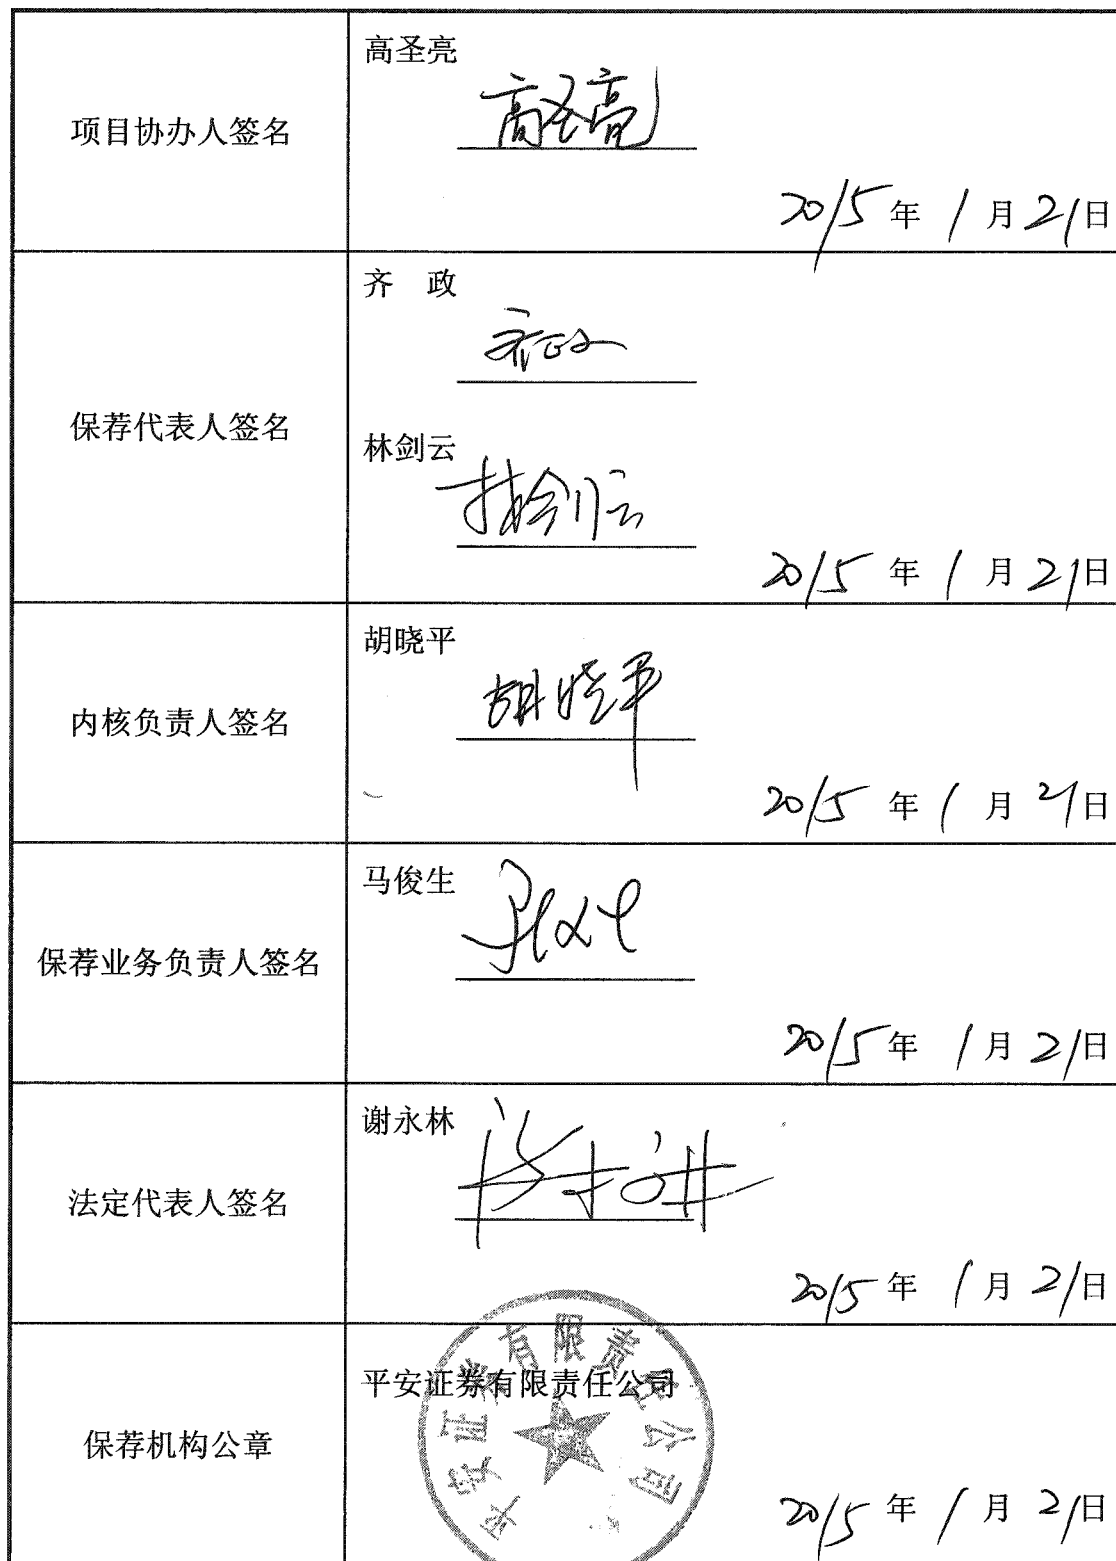 项目协办人签名
高圣亮
高圣亮
2015年1月21日
保荐代表人签名
齐 政
齐政
林剑云
林剑云
2015年1月21日
内核负责人签名
胡晓平
胡晓平
2015年1月21日
保荐业务负责人签名
马俊生
2015年1月21日
法定代表人签名
谢永林
2015年1月21日
保荐机构公章
平安证券有限责任公司
平安证券有限责任公司
2015年1月21日